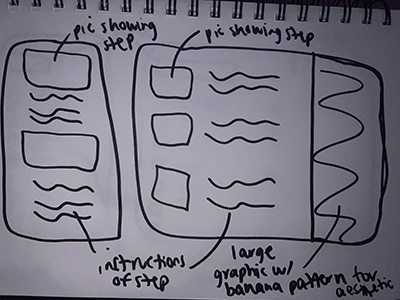 pic showing
step
pic showing step
instructions
of step
large
graphic w/
banana pattern for
aesthetic